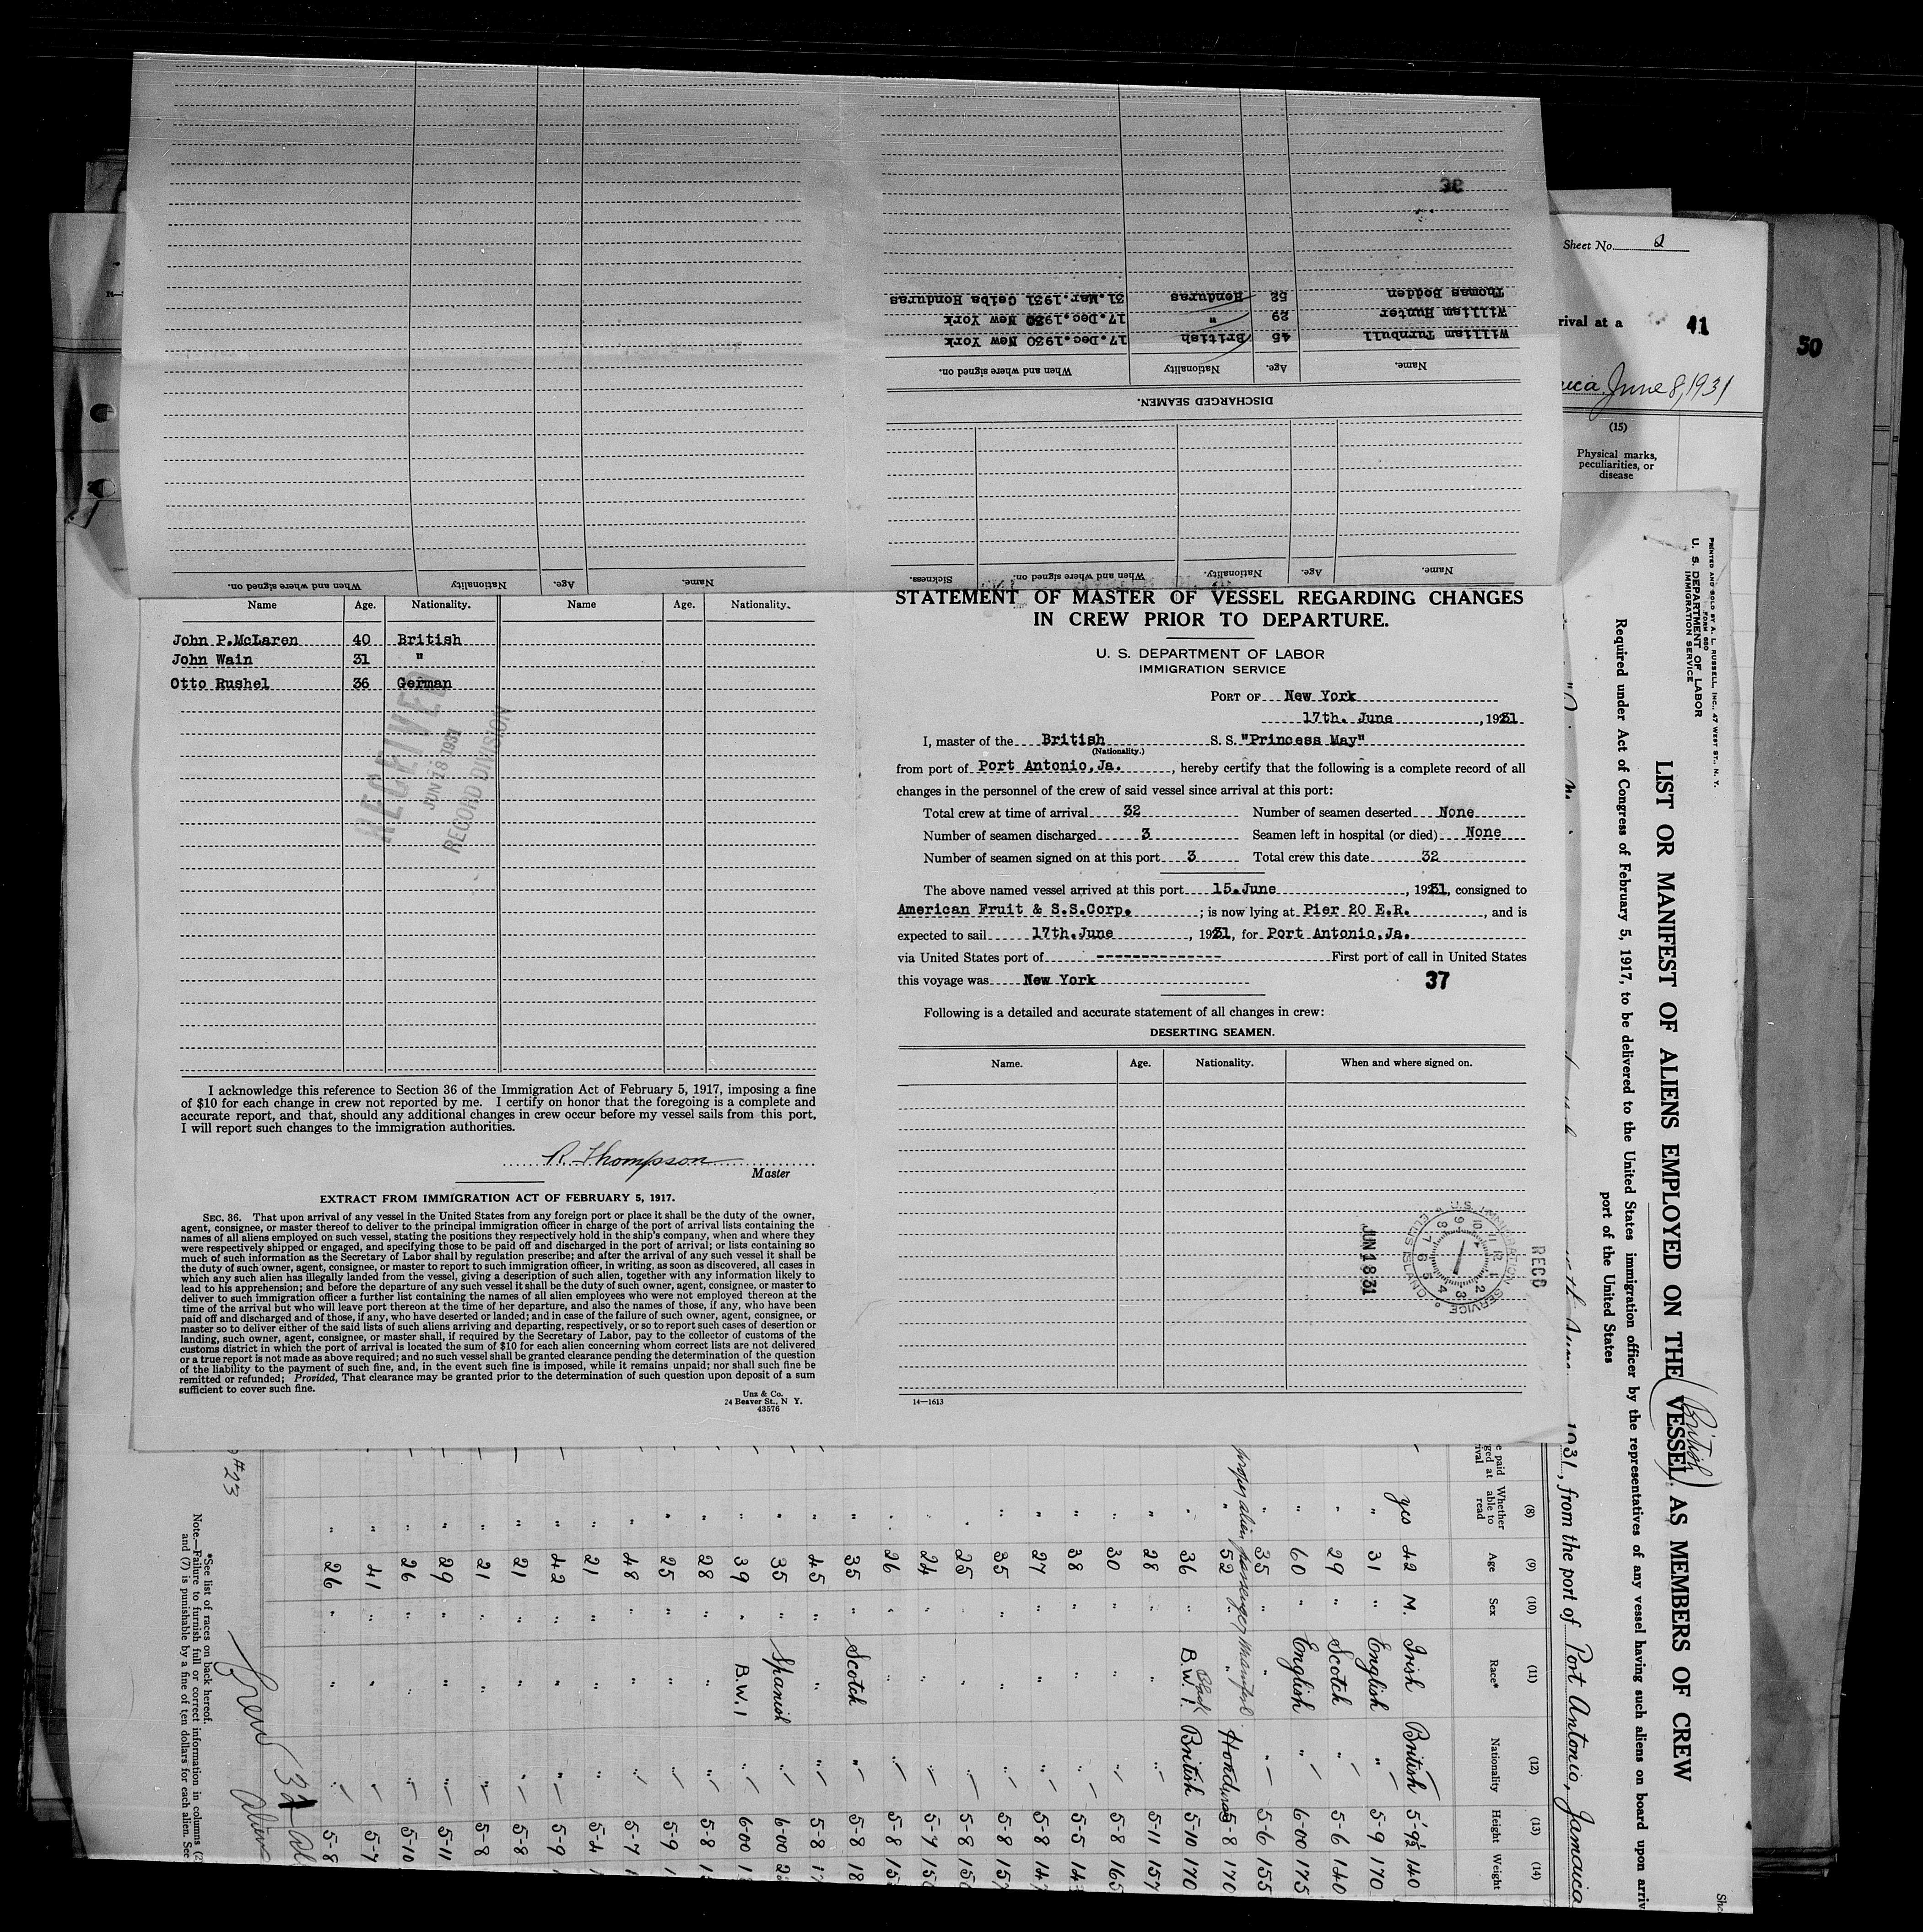 38
Thomas Bodden 52 Honduras 31.Mar.1931 Ceiba Honduras
William Hunter 29 " 17.Dec.1930 New York
William Turnbull 45 British 17.Dec.1930 New York
Name. Age. Nationality When and where signed on.
DISCHARGED SEAMEN.
Name. Age. Nationality. When and where signed on. Sickness.
Name. Age. Nationality When and where signed on.
Name Age. Nationality. Name Age. Nationality.
John P.McLaren 40 British
John Wain 31 "
Otto Rushel 36 German
RECEIVED
JUN 18 1931
RECORD DIVISION
I acknowledge this reference to Section 36 of the Immigration Act of February 5, 1917, imposing a fine
of $10 for each change in crew not reported by me. I certify on honor that the foregoing is a complete and
accurate report, and that, should any additional changes in crew occur before my vessel sails from this port,
I will report such changes to the immigration authorities.
R. Thompson
Master
EXTRACT FROM IMMIGRATION ACT OF FEBRUARY 5, 1917.
SEC. 36. That upon arrival of any vessel in the United States from any foreign port or place it shall be the duty of the owner,
agent, consignee, or master thereof to deliver to the principal immigration officer in charge of the port of arrival lists containing the
names of all aliens employed on such vessel, stating the positions they respectively hold in the ship's company, when and where they
were respectively shipped or engaged, and specifying those to be paid off and discharged in the port of arrival; or lists containing so
much of such information as the Secretary of Labor shall by regulation prescribe; and after the arrival of any such vessel it shall be
the duty of such owner, agent, consignee, or master to report to such immigration officer, in writing, as soon as discovered, all cases in
which any such alien has illegally landed from the vessel, giving a description of such alien, together with any information likely to
lead to his apprehension; and before the departure of any such vessel it shall be the duty of such owner, agent, consignee, or master to
deliver to such immigration officer a further list containing the names of all alien employees who were not employed thereon at the
time of the arrival but who will leave port thereon at the time of her departure, and also the names of those, if any, who have been
paid off and discharged and of those, if any, who have deserted or landed; and in case of the failure of such owner, agent, consignee, or
master so to deliver either of the said lists of such aliens arriving and departing, respectively, or so to report such cases of desertion or
landing, such owner, agent, consignee, or master shall, if required by the Secretary of Labor, pay to the collector of customs of the
customs district in which the port of arrival is located the sum of $10 for each alien concerning whom correct lists are not delivered
or a true report is not made as above required; and no such vessel shall be granted clearance pending the determination of the question
of the liability to the payment of such fine, and, in the event such fine is imposed, while it remains unpaid; nor shall such fine be
remitted or refunded; Provided, That clearance may be granted prior to the determination of such question upon deposit of a sum
sufficient to cover such fine.
Unz & Co.
24 Beaver St., N Y.
43576
STATEMENT OF MASTER OF VESSEL REGARDING CHANGES
IN CREW PRIOR TO DEPARTURE.
U. S. DEPARTMENT OF LABOR
IMMIGRATION SERVICE
PORT OF New York
17th. June , 1931
I, master of the British S. S. "Princess May"
(Nationality.)
from port of Port Antonio,Ja. , hereby certify that the following is a complete record of all
changes in the personnel of the crew of said vessel since arrival at this port:
Total crew at time of arrival 32 Number of seamen deserted None
Number of seamen discharged 3 Seamen left in hospital (or died) None
Number of seamen signed on at this port 3 Total crew this date 32
The above named vessel arrived at this port 15.June , 1931, consigned to
American Fruit & S.S.Corp. ; is now lying at Pier 20 E.R. , and is
expected to sail 17th.June , 1931, for Port Antonio,Ja.
via United States port of -------------- First port of call in United States
this voyage was New York
37
Following is a detailed and accurate statement of all changes in crew:
DESERTING SEAMEN.
Name. Age. Nationality. When and where signed on.
REC'D
U.S. IMMIGRATION SERVICE ELLIS ISLAND
JUN 18 31
14—1613
Sheet No. 2
rival at a
41
50
ica June 8, 1931
(15)
Physical marks,
peculiarities, or
disease
PRINTED AND SOLD BY A. L. RUSSELL, INC., 47 WEST ST., N. Y.
FORM 680
U. S. DEPARTMENT OF LABOR
IMMIGRATION SERVICE
LIST OR MANIFEST OF ALIENS EMPLOYED ON THE VESSEL AS MEMBERS OF CREW
(British)
Required under Act of Congress of February 5, 1917, to be delivered to the United States immigration officer by the representatives of any vessel having such aliens on board upon arriv
port of the United States
1931, from the port of Port Antonio, Jamaica
(8) (9) (10) (11) (12) (13) (14)
Whether able to read Age Sex Race* Nationality Height Weight
yes 42 M. Irish British 5'-9½ 140
" 31 " English " 5-9 170
" 29 " Scotch " 5-6 140
" 60 " English " 6-00 175
" 35 " " " 5-6 155
" 52 " " Honduras 5-8 170
" 36 " Black B.W.I. British 5-10 170
" 28 " " " 5-11 157
" 30 " " " 5-8 165
" 38 " " " 5-5 143
" 27 " " " 5-8 147
" 35 " " " 5-8 157
" 25 " " " 5-8
" 24 " " " 5-7
" 26 " " " 5-8
" 35 " Scotch " 5-8
" 45 " " " 5-8
" 35 " Spanish " 6-00
" 39 " B.W.I " 6-00
" 28 " " " 5-8
" 25 " " " 5-9
" 48 " " " 5-7
" 21 " " " 5-4
" 42 " " " 5-9
" 21 " " " 5-8
" 21 " " " 5-8
" 29 " " " 5-11
" 26 " " " 5-10
" 41 " " " 5-7
" 26 " " " 5-8
#23
Crew 32
Aliens
*See list of races on back hereof.
Note.—Failure to furnish full or correct information in columns (2)
and (7) is punishable by a fine of ten dollars for each alien. See